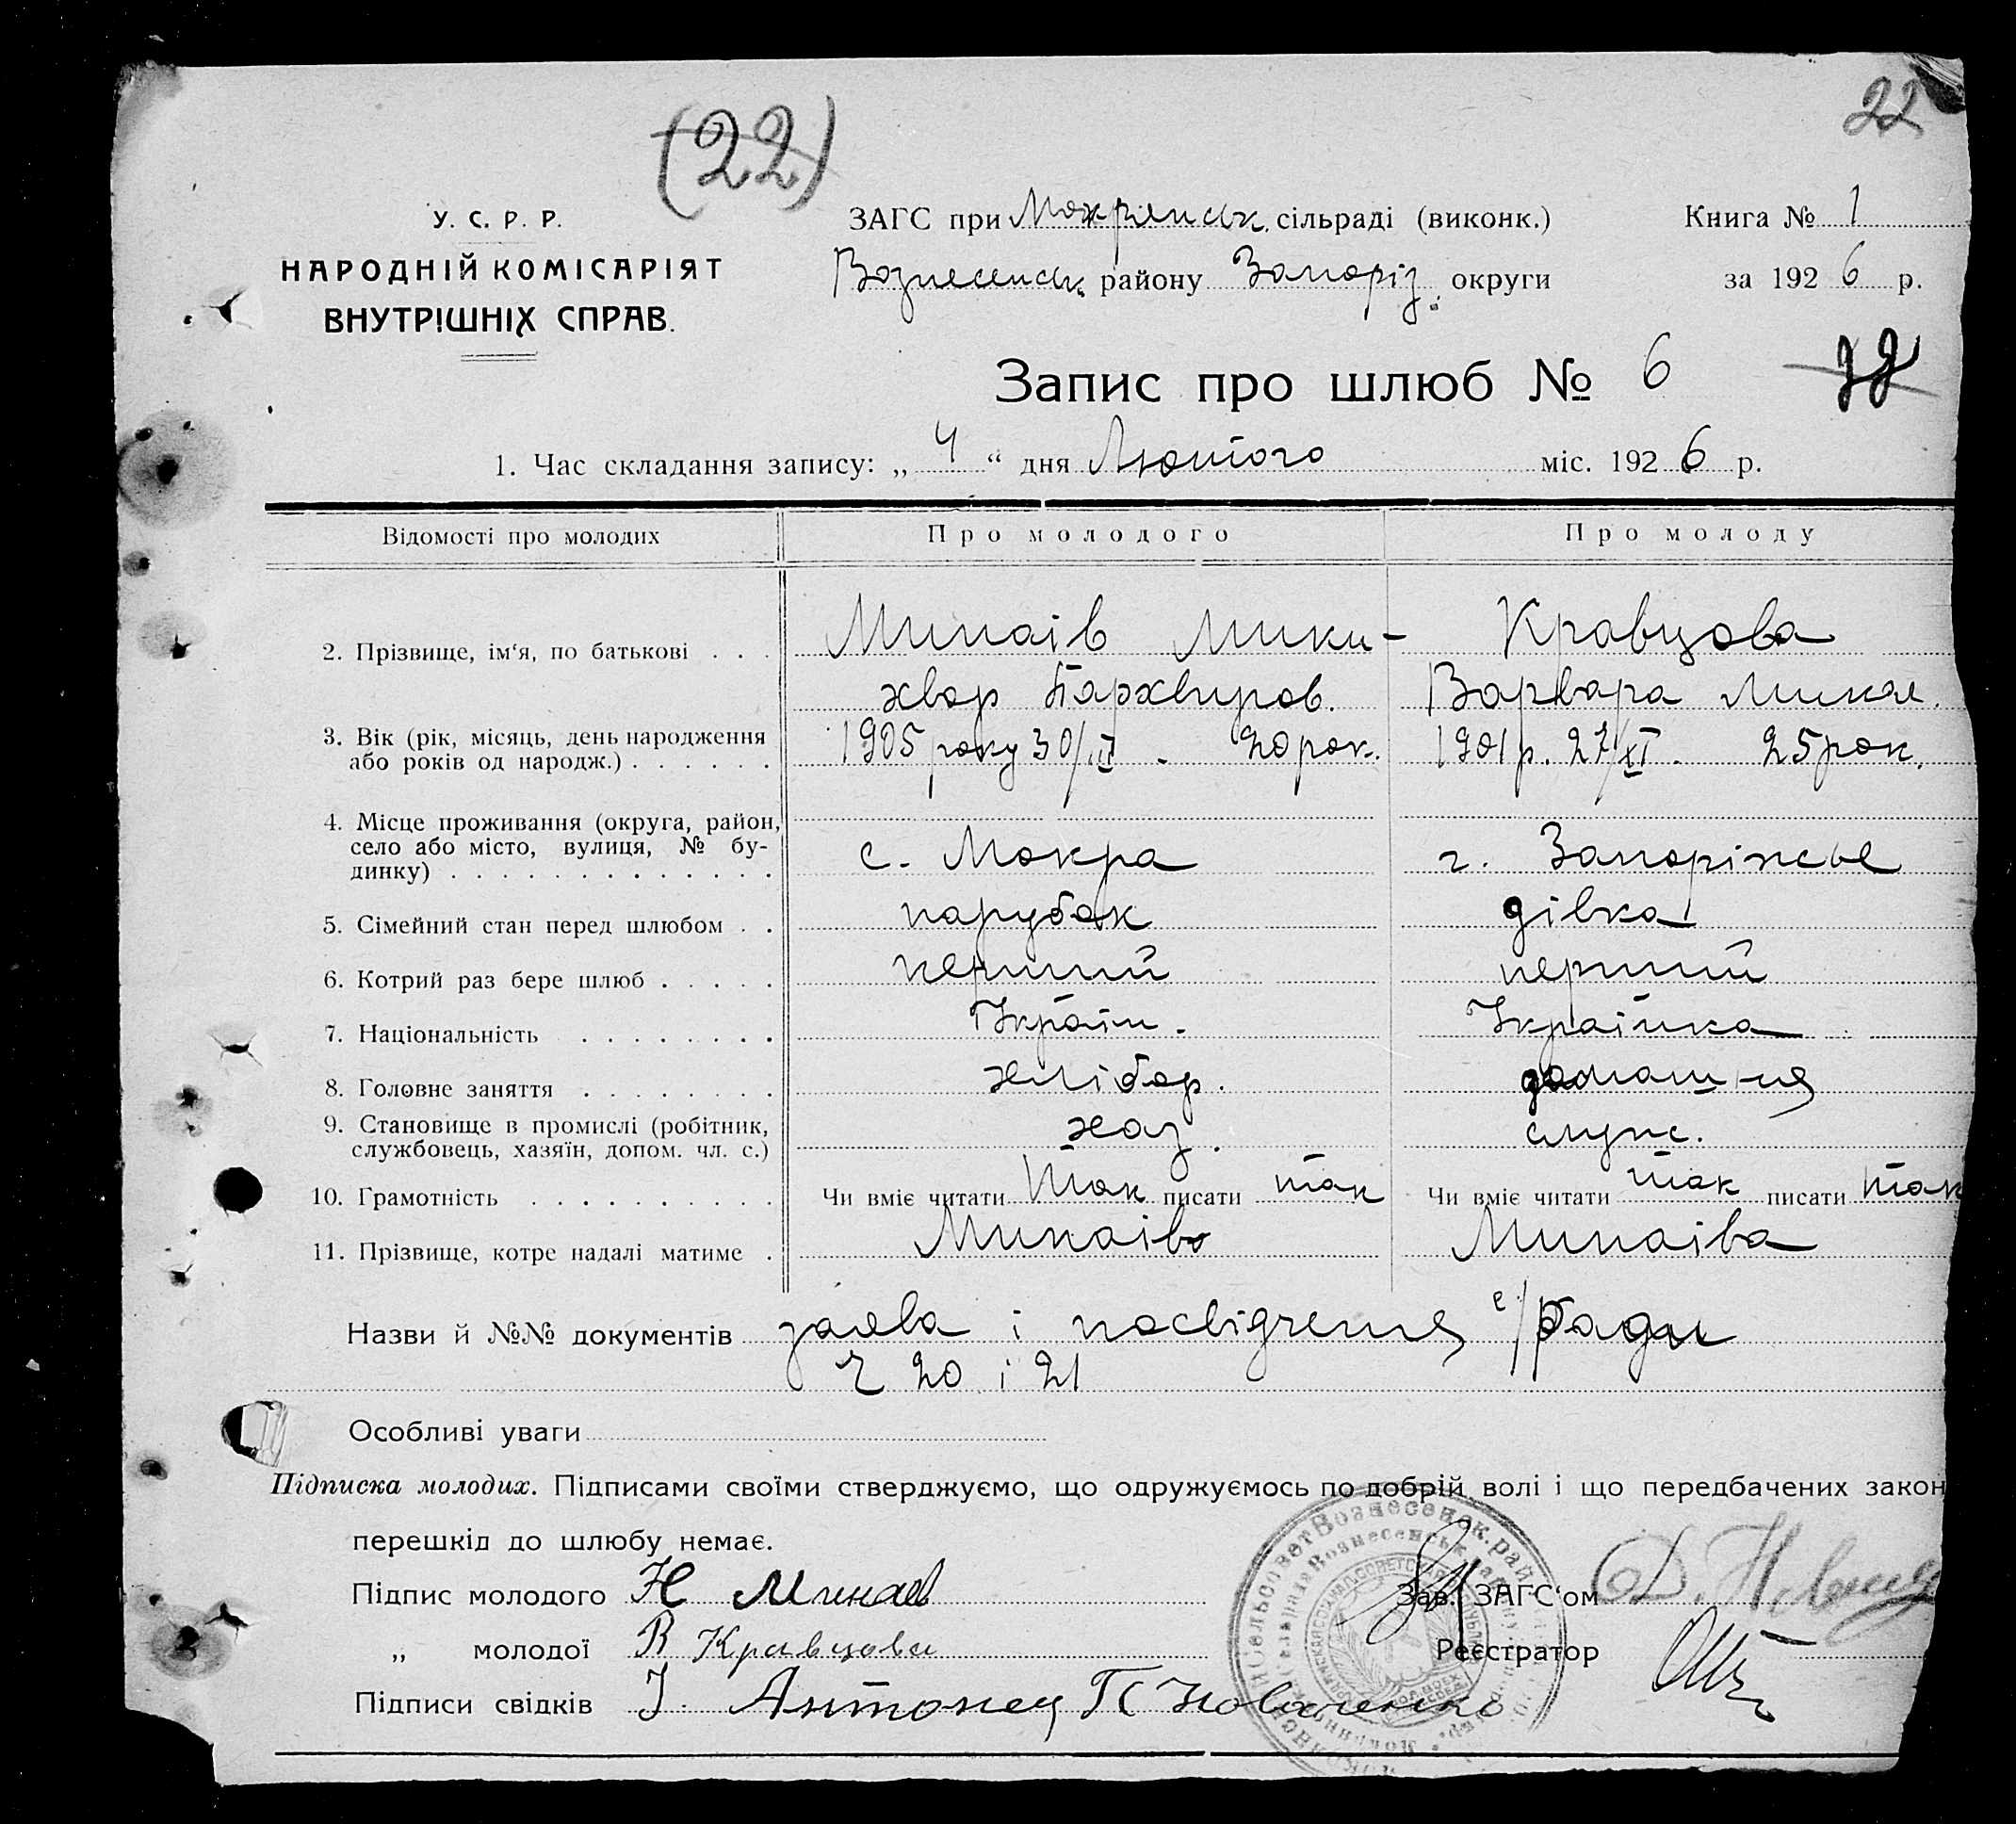 (22)
22
У. С. Р. Р.
НАРОДНІЙ КОМІСАРІЯТ
ВНУТРІШНІХ СПРАВ.
ЗАГС при Мокрянськ. сільраді (виконк.) Книга № 1
Вознесенськ. району Запоріз. округи за 1926 р.
Запис про шлюб № 6
1. Час складання запису: „ 4 “ дня Лютого міс. 1926 р.
Відомості про молодих Про молодого Про молоду
2. Прізвище, ім'я, по батькові . . . Минаів Мики- Кравцова
хвор Пархвиров. Варвара Микол.
3. Вік (рік, місяць, день народження 1905 року 30/III. 20 рок. 1901 р. 27/XI. 25 рок.
або років од народж.) . . . . . .
4. Місце проживання (округа, район,
село або місто, вулиця, № бу- с. Мокра г. Запоріжсье
динку) . . . . . . . . . . . . .
5. Сімейний стан перед шлюбом . . парубок дівка
6. Котрий раз бере шлюб . . . . . перший перший
7. Національність . . . . . . . . Україн. Українка
8. Головне заняття . . . . . . . . хлібор. домашня
9. Становище в промислі (робітник, хаз. служ.
службовець, хазяїн, допом. чл. с.)
10. Грамотність . . . . . . . . . . Чи вміє читати Так писати так Чи вміє читати так писати так
11. Прізвище, котре надалі матиме . Минаів Минаіва
Назви й №№ документів заява і посвідчення с/Ради
Ч 20 і 21
Особливі уваги
Підписка молодих. Підписами своїми стверджуємо, що одружуємось по добрій волі і що передбачених закон
перешкід до шлюбу немає.
Підпис молодого Н Минаев Зав. ЗАГС'ом
„ молодої В Кравцова Реєстратор
Підписи свідків І. Антонец П Коваченко
Сельсовет Вознесенск. рай